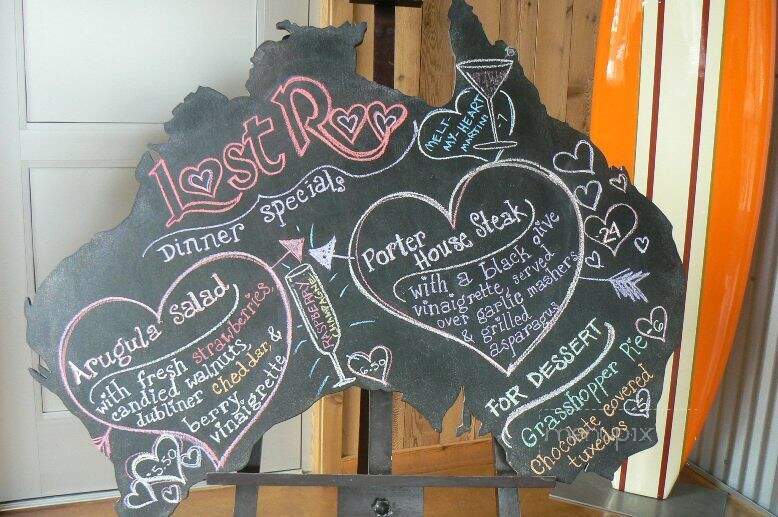 Lost Roo
Dinner Specials
MELT-
MY-HEART
MARTINI
7
Arugula Salad
with fresh strawberries,
candied walnuts
dubliner cheddar &
berry
vinaigrette
5.50
RASPBERRY
CHAMPAGNE
6.50
Porter
House Steak
with a black olive
vinaigrette, served
over garlic mashers
& grilled
asparagus
24
FOR DESSERT
Grasshopper Pie
6
Chocolate covered
tuxedos
menupix